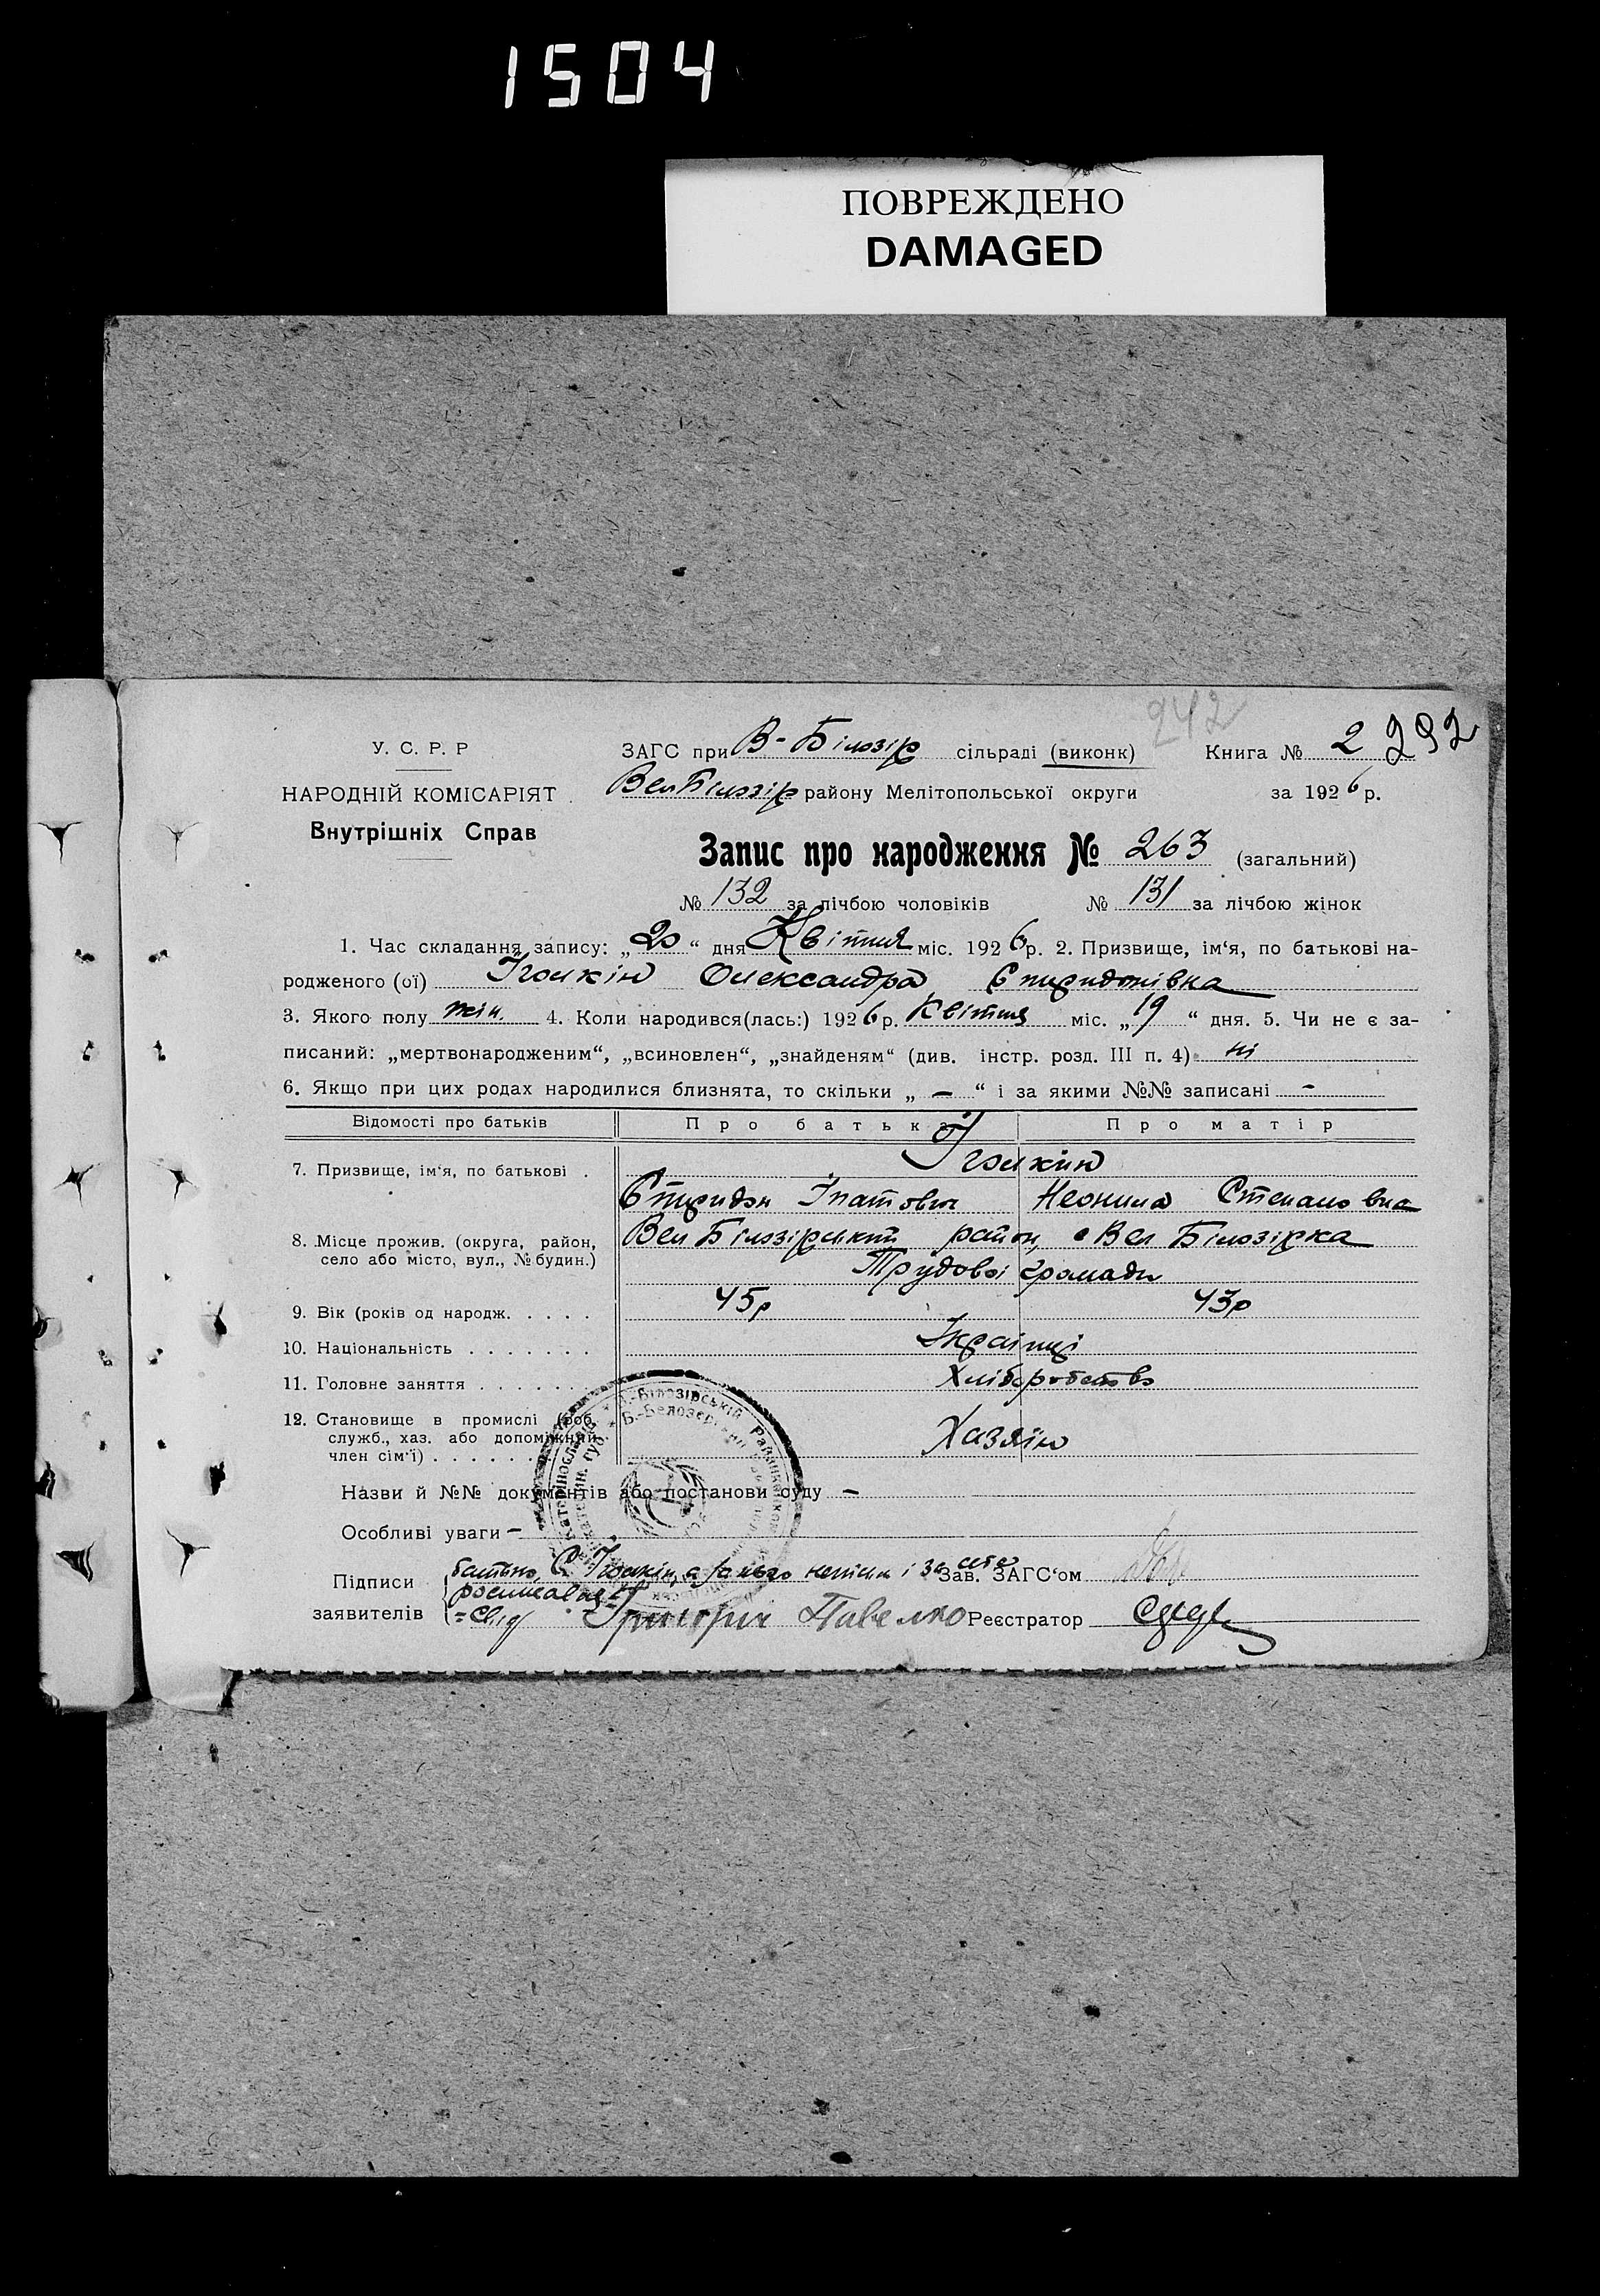 1504
ПОВРЕЖДЕНО
DAMAGED
242
У. С. Р. Р
НАРОДНІЙ КОМІСАРІЯТ
Внутрішніх Справ
ЗАГС при В-Білозір сільраді (виконк) Книга № 2 292
Вел Білозір району Мелітопольської округи за 1926 р.
Запис про народження № 263 (загальний)
№ 132 за лічбою чоловіків № 131 за лічбою жінок
1. Час складання запису: „20“ дня Квітня міс. 1926 р. 2. Призвище, ім‘я, по батькові на-
родженого (ої) Іголкін Олександра Спиридонівка
3. Якого полу жін. 4. Коли народився(лась:) 1926 р. Квітня міс. „19“ дня. 5. Чи не є за-
писаний: „мертвонародженим“, „всиновлен“, „знайденям“ (див. інстр. розд. III п. 4) ні
6. Якщо при цих родах народилися близнята, то скільки „ — “ і за якими №№ записані -
Відомості про батьків Про батька Про матір
7. Призвище, ім‘я, по батькові . Іголкин
Спиридон Іпатович Неонила Степановна
8. Місце прожив. (округа, район, село або місто, вул., № будин.) Вел Білозірський район, с Вел Білозірка
Трудової громади
9. Вік (років од народж. . . . . 45р 43р
10. Національність . . . . . . . Українці
11. Головне заняття . . . . . . Хліборобство
12. Становище в промислі (роб.
служб., хаз. або допоміжний
член сім‘ї) . . . . . . Хазяїн
Назви й №№ документів або постанови суду —
Особливі уваги —
Підписи батько, С. Іголкін, а за його неписьм і за себе Зав. ЗАГС‘ом
заявителів Григорій Павелко Реєстратор